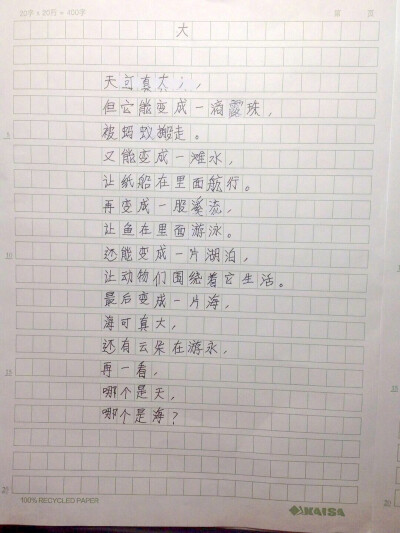 20字 x 20行 = 400字 第 页
大
天可真大,
但它能变成一滴露珠,
被蚂蚁搬走。
又能变成一滩水,
让纸船在里面航行。
5
再变成一股溪流,
让鱼在里面游泳。
还能变成一片湖泊,
10
让动物们围绕着它生活。
最后变成一片海,
海可真大,
还有云朵在游永,
15
再一看,
哪个是天,
哪个是海?
20
100% RECYCLED PAPER KAISA